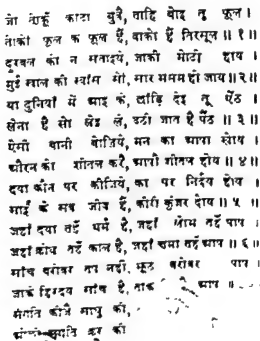 जो तोकूँ काटा बुवै, ताहि बोइ तू फूल।
ताकी फूल क फूल हैं, वाकी हैं तिरसूल ॥ १ ॥
दुरबल को न सताइये, जाकी मोटी हाय।
मुई खाल की स्वाँस सों, सार भसम हो जाय ॥ २ ॥
या दुनियाँ में आइ के, छाँड़ि देइ तू ऐंठ।
लेना है सो लेइ ले, उठी जात है पैंठ ॥ ३ ॥
ऐसी बानी बोलिये, मन का आपा खोय।
औरन को सीतल करै, आपौ सीतल होय ॥ ४ ॥
दया कौन पर कीजिये, का पर निर्दय होय।
साईं के सब जीव हैं, कीरी कुंजर दोय ॥ ५ ॥
जहाँ दया तहँ धर्म है, जहाँ लोभ तहँ पाप।
जहाँ क्रोध तहँ काल है, जहाँ छमा तहँ आप ॥ ६ ॥
साँच बरोबर तप नहीं, झूठ बरोबर पाप।
जाके हिरदय साँच है, ताके आप ॥
संगति कीजै साधु की,
संगति कूर की